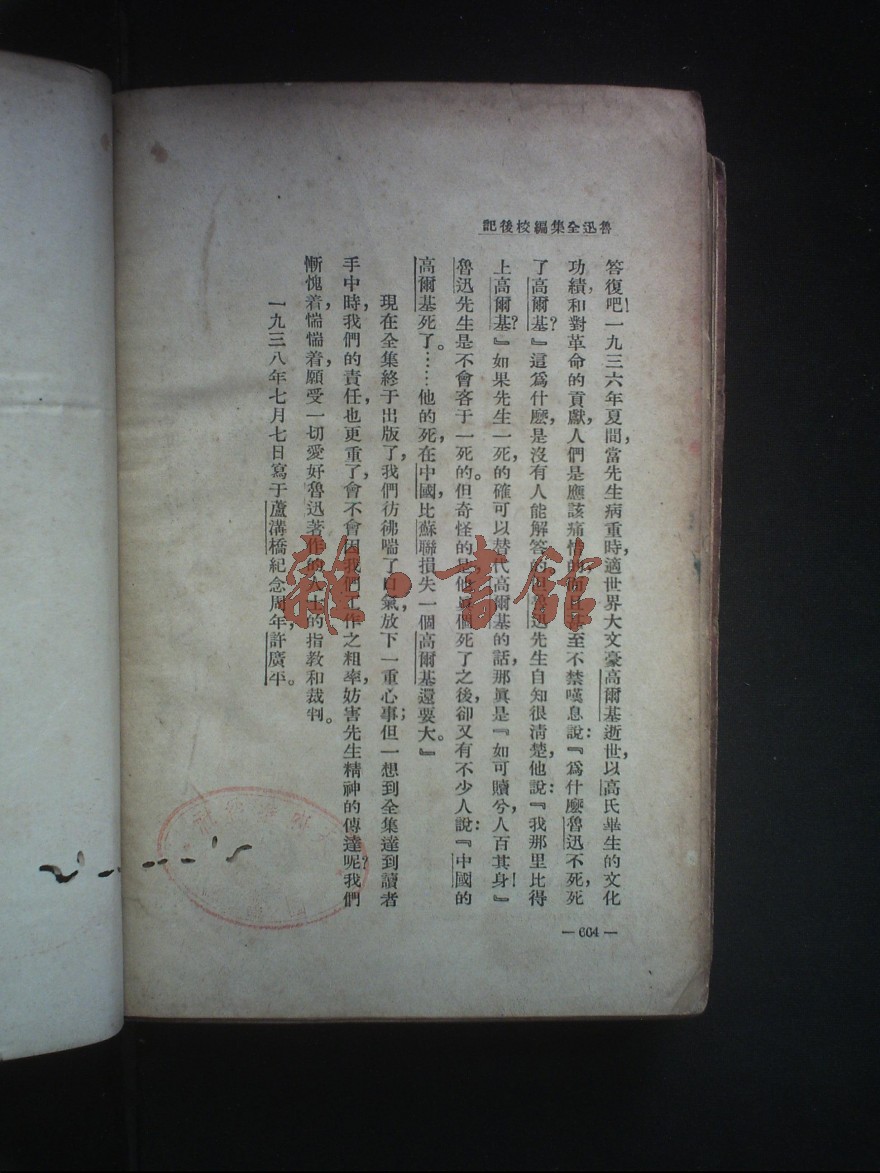 魯迅全集編校後記
答復吧！一九三六年夏間，當先生病重時，適世界大文豪高爾基逝世，以高氏畢生的文化
功績，和對革命的貢獻，人們是應該痛惜的，而且甚至不禁嘆息說：『爲什麼魯迅不死，死
了高爾基？』這爲什麼，是沒有人能解答的。但魯迅先生自知很清楚，他說：『我那里比得
上高爾基？』如果先生一死，的確可以替代高爾基的話，那眞是『如可贖兮，人百其身！』
魯迅先生是不會吝于一死的。但奇怪的是他眞個死了之後，卻又有不少人說：『中國的
高爾基死了。……他的死，在中國，比蘇聯損失一個高爾基還要大。』
現在全集終于出版了，我們彷彿喘了口氣，放下一重心事；但一想到全集達到讀者
手中時，我們的責任，也更重了，會不會因我們工作之粗率，妨害先生精神的傳達呢？我們
慚愧着，惴惴着，願受一切愛好魯迅著作的人士的指教和裁判。
一九三八年七月七日寫于蘆溝橋紀念周年，許廣平。
— 664 —
雜·書館